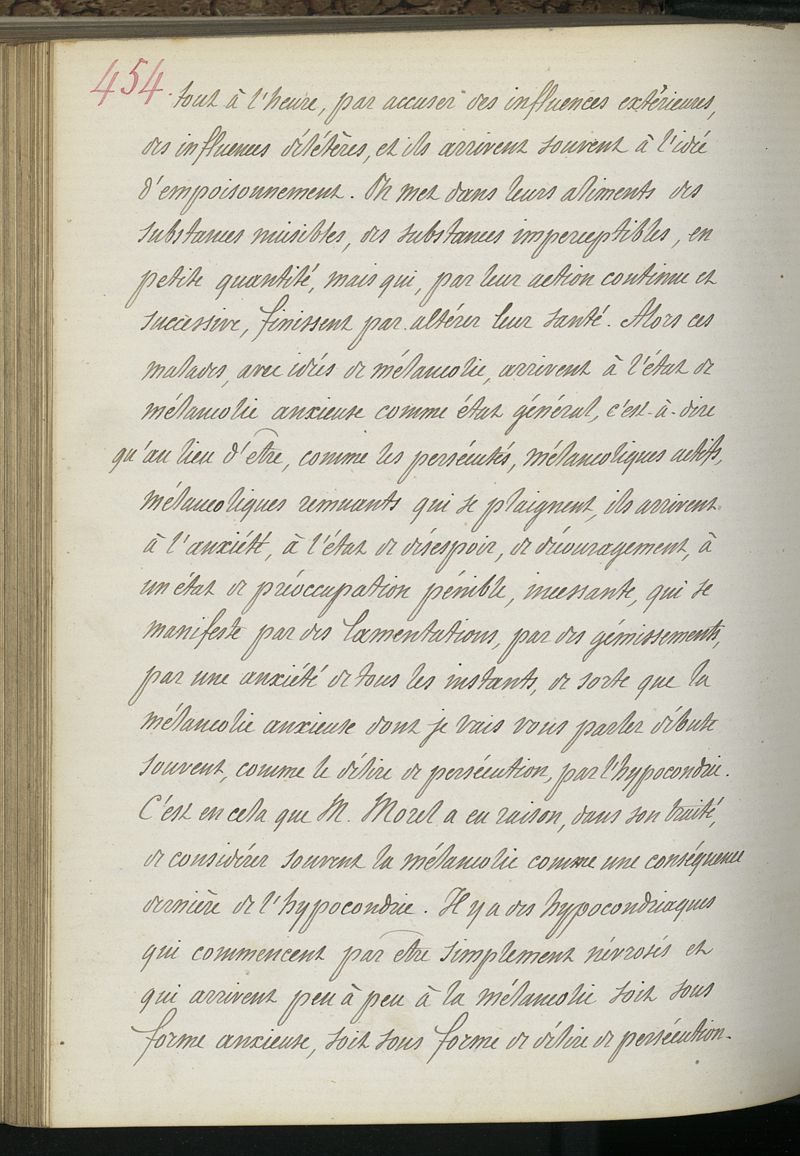 454.
tout à l'heure, par accuser des influences extérieures,
des influences délétères, et ils arrivent souvent à l'idée
d'empoisonnement. On met dans leurs aliments des
substances nuisibles, des substances imperceptibles, en
petite quantité, mais qui, par leur action continue et
successive, finissent par altérer leur santé. Alors ces
malades, avec idées de mélancolie, arrivent à l'état de
mélancolie anxieuse comme état général, c'est-à-dire
qu'au lieu d'être, comme les persécutés, mélancoliques actifs,
mélancoliques remuants qui se plaignent, ils arrivent
à l'anxiété, à l'état de désespoir, de découragement, à
un état de préoccupation pénible, incessante, qui se
manifeste par des lamentations, par des gémissements,
par une anxiété de tous les instants, de sorte que la
mélancolie anxieuse dont je vais vous parler débute
souvent, comme le délire de persécution, par l'hypocondrie.
C'est en cela que M. Morel a eu raison, dans son traité,
de considérer souvent la mélancolie comme une conséquence
dernière de l'hypocondrie. Il y a des hypocondriaques
qui commencent par être simplement névrosés et
qui arrivent peu à peu à la mélancolie soit sous
forme anxieuse, soit sous forme de délire de persécution.